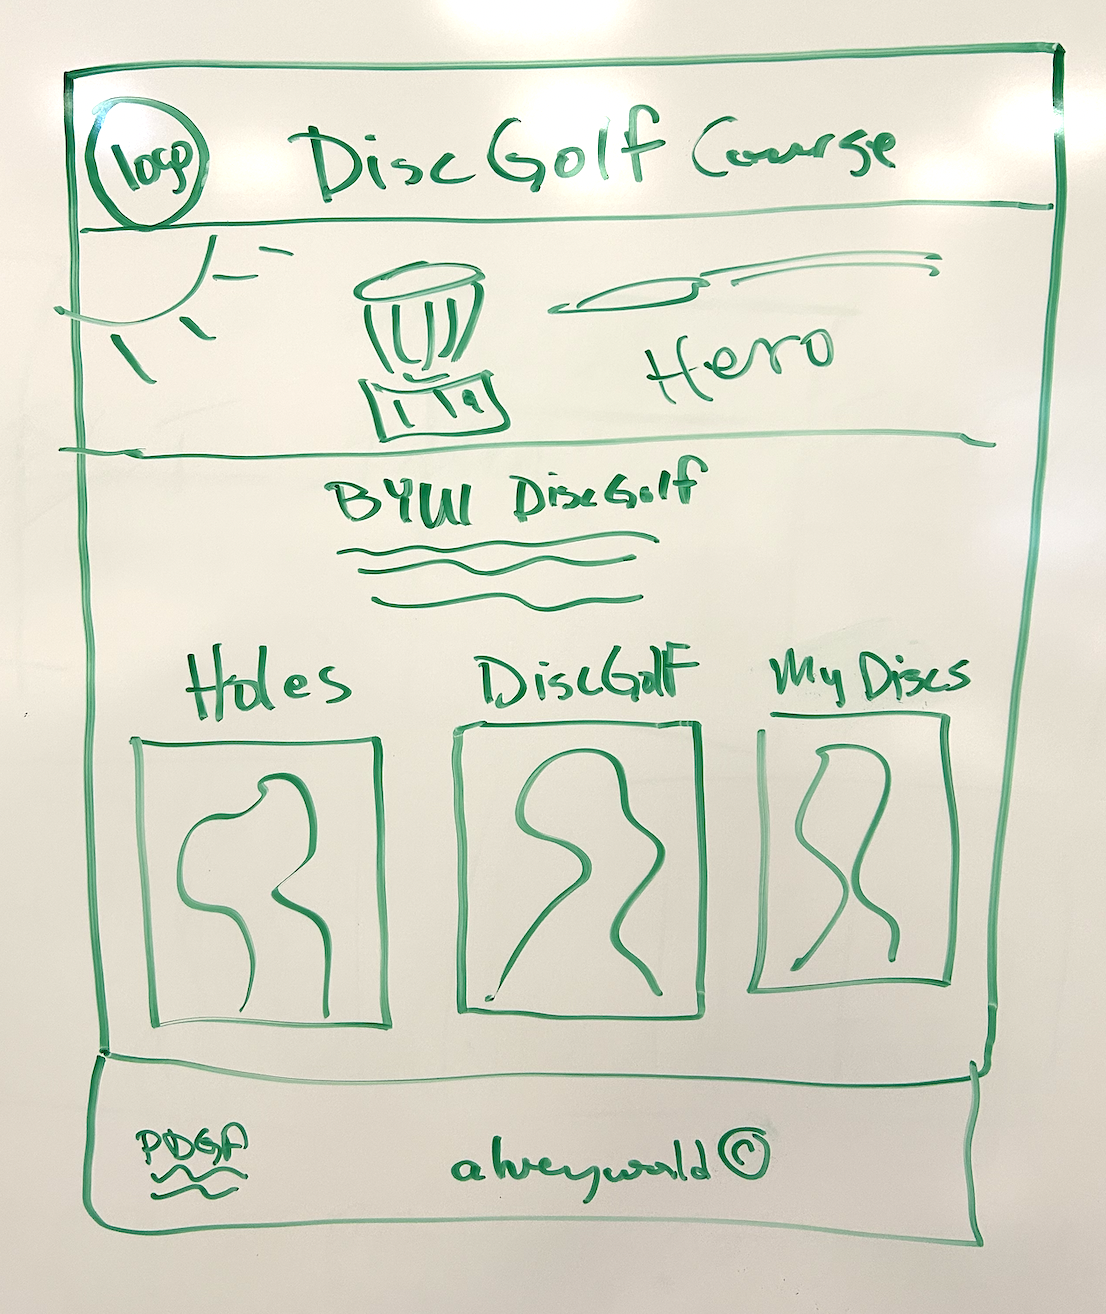 logo
Disc Golf Course
Hero
BYUI Disc Golf
Holes
Disc Golf
My Discs
PDGA
alveyworld ©